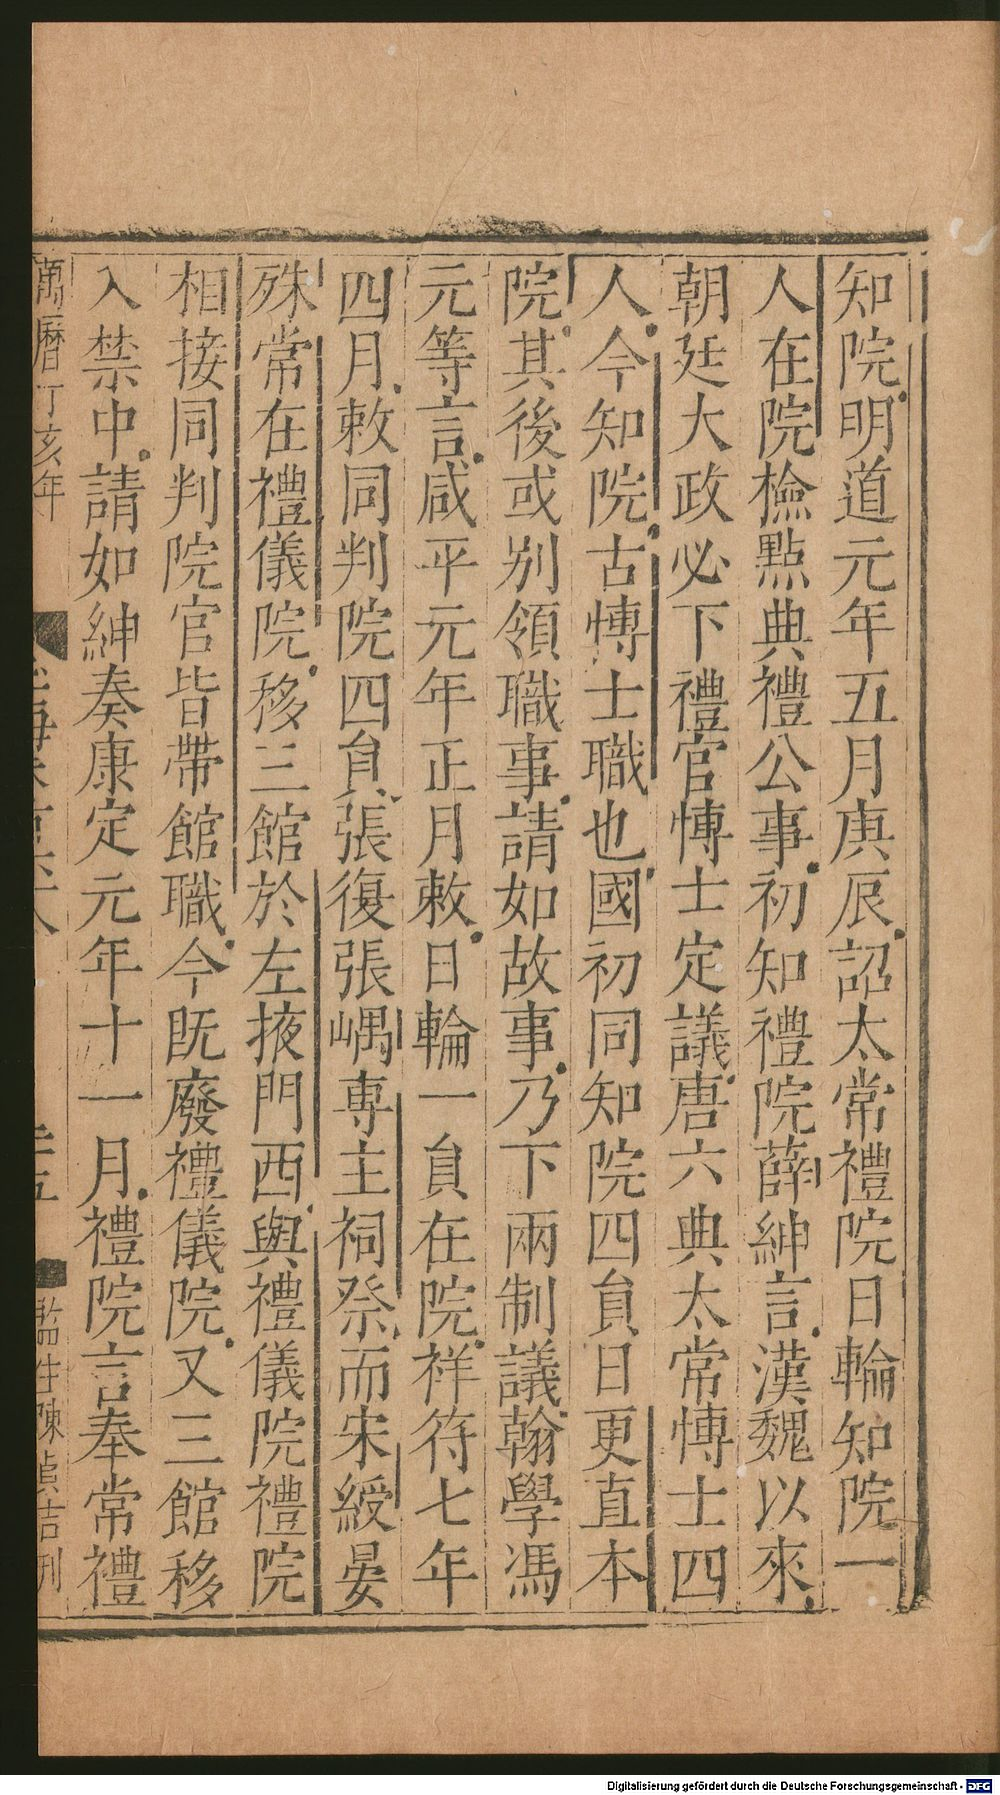 知院明道元年五月庚辰詔太常禮院日輪知院一
人在院檢點典禮公事初知禮院薛紳言漢魏以來
朝廷大政必下禮官博士定議唐六典太常博士四
人今知院古博士職也國初同知院四員日更直本
院其後或別領職事請如故事乃下兩制議翰學馮
元等言咸平元年正月敕日輪一員在院祥符七年
四月敕同判院四員張復張嵎專主祠祭而宋綬晏
殊常在禮儀院移三館於左掖門西與禮儀院禮院
相接同判院官皆帶館職今既廢禮儀院又三館移
入禁中請如紳奏康定元年十一月禮院言奉常禮
萬曆丁亥年 監生陳貞吉刊
Digitalisierung gefördert durch die Deutsche Forschungsgemeinschaft - DFG